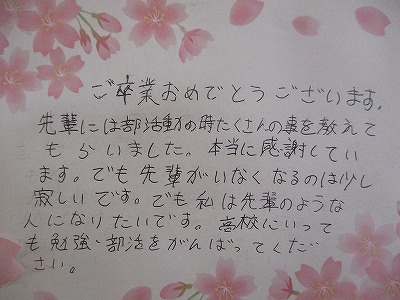 ご卒業おめでとうございます。
先輩には部活動の時たくさんの事を教えて
もらいました。本当に感謝してい
ます。でも先輩がいなくなるのは少し
寂しいです。でも私は先輩のような
人になりたいです。高校にいって
も勉強、部活をがんばってくだ
さい。